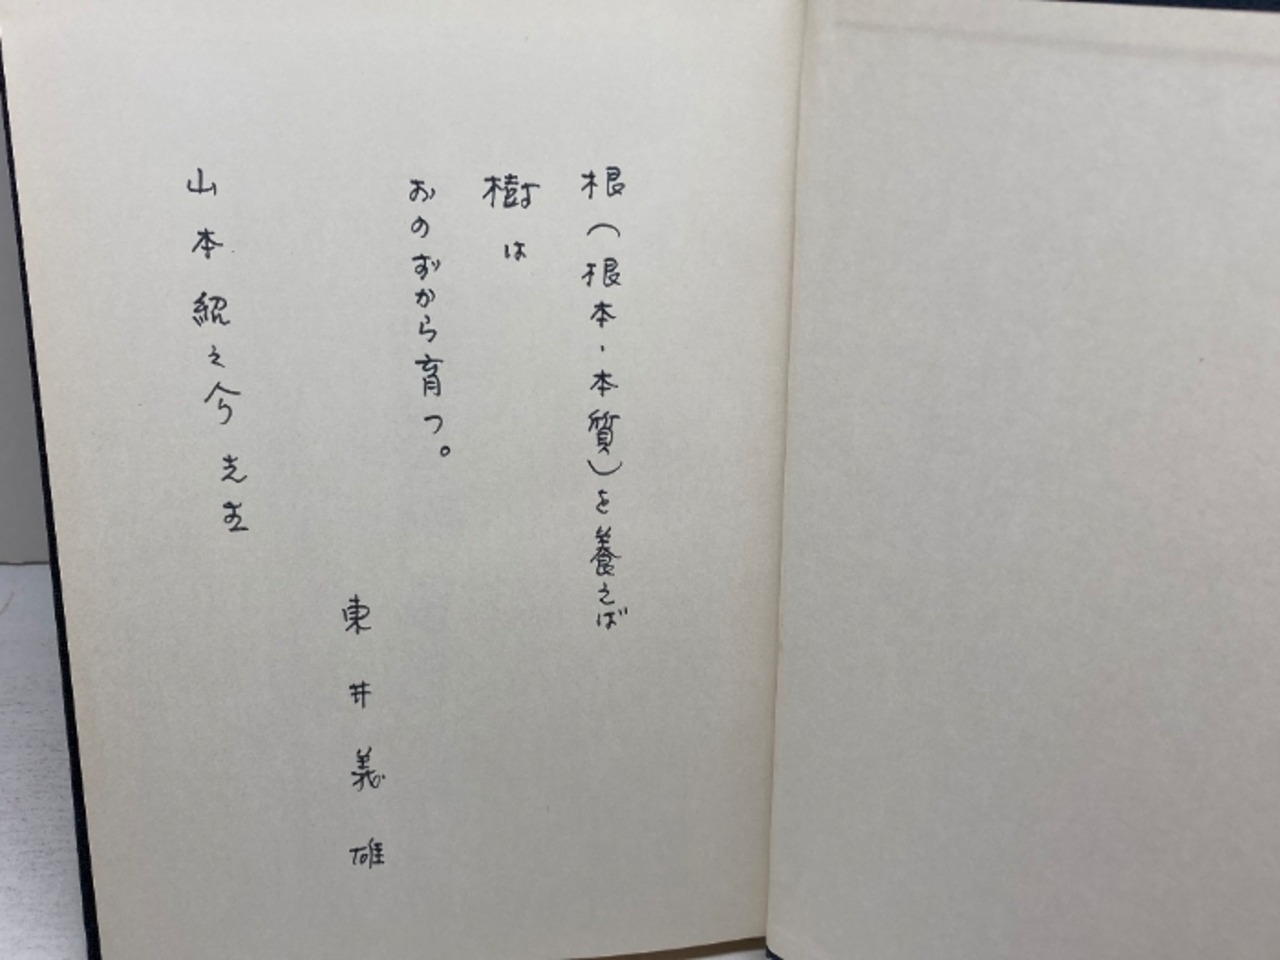 根(根本・本質)を養えば
樹は
おのずから育つ。
東井義雄
山本紹之今先生